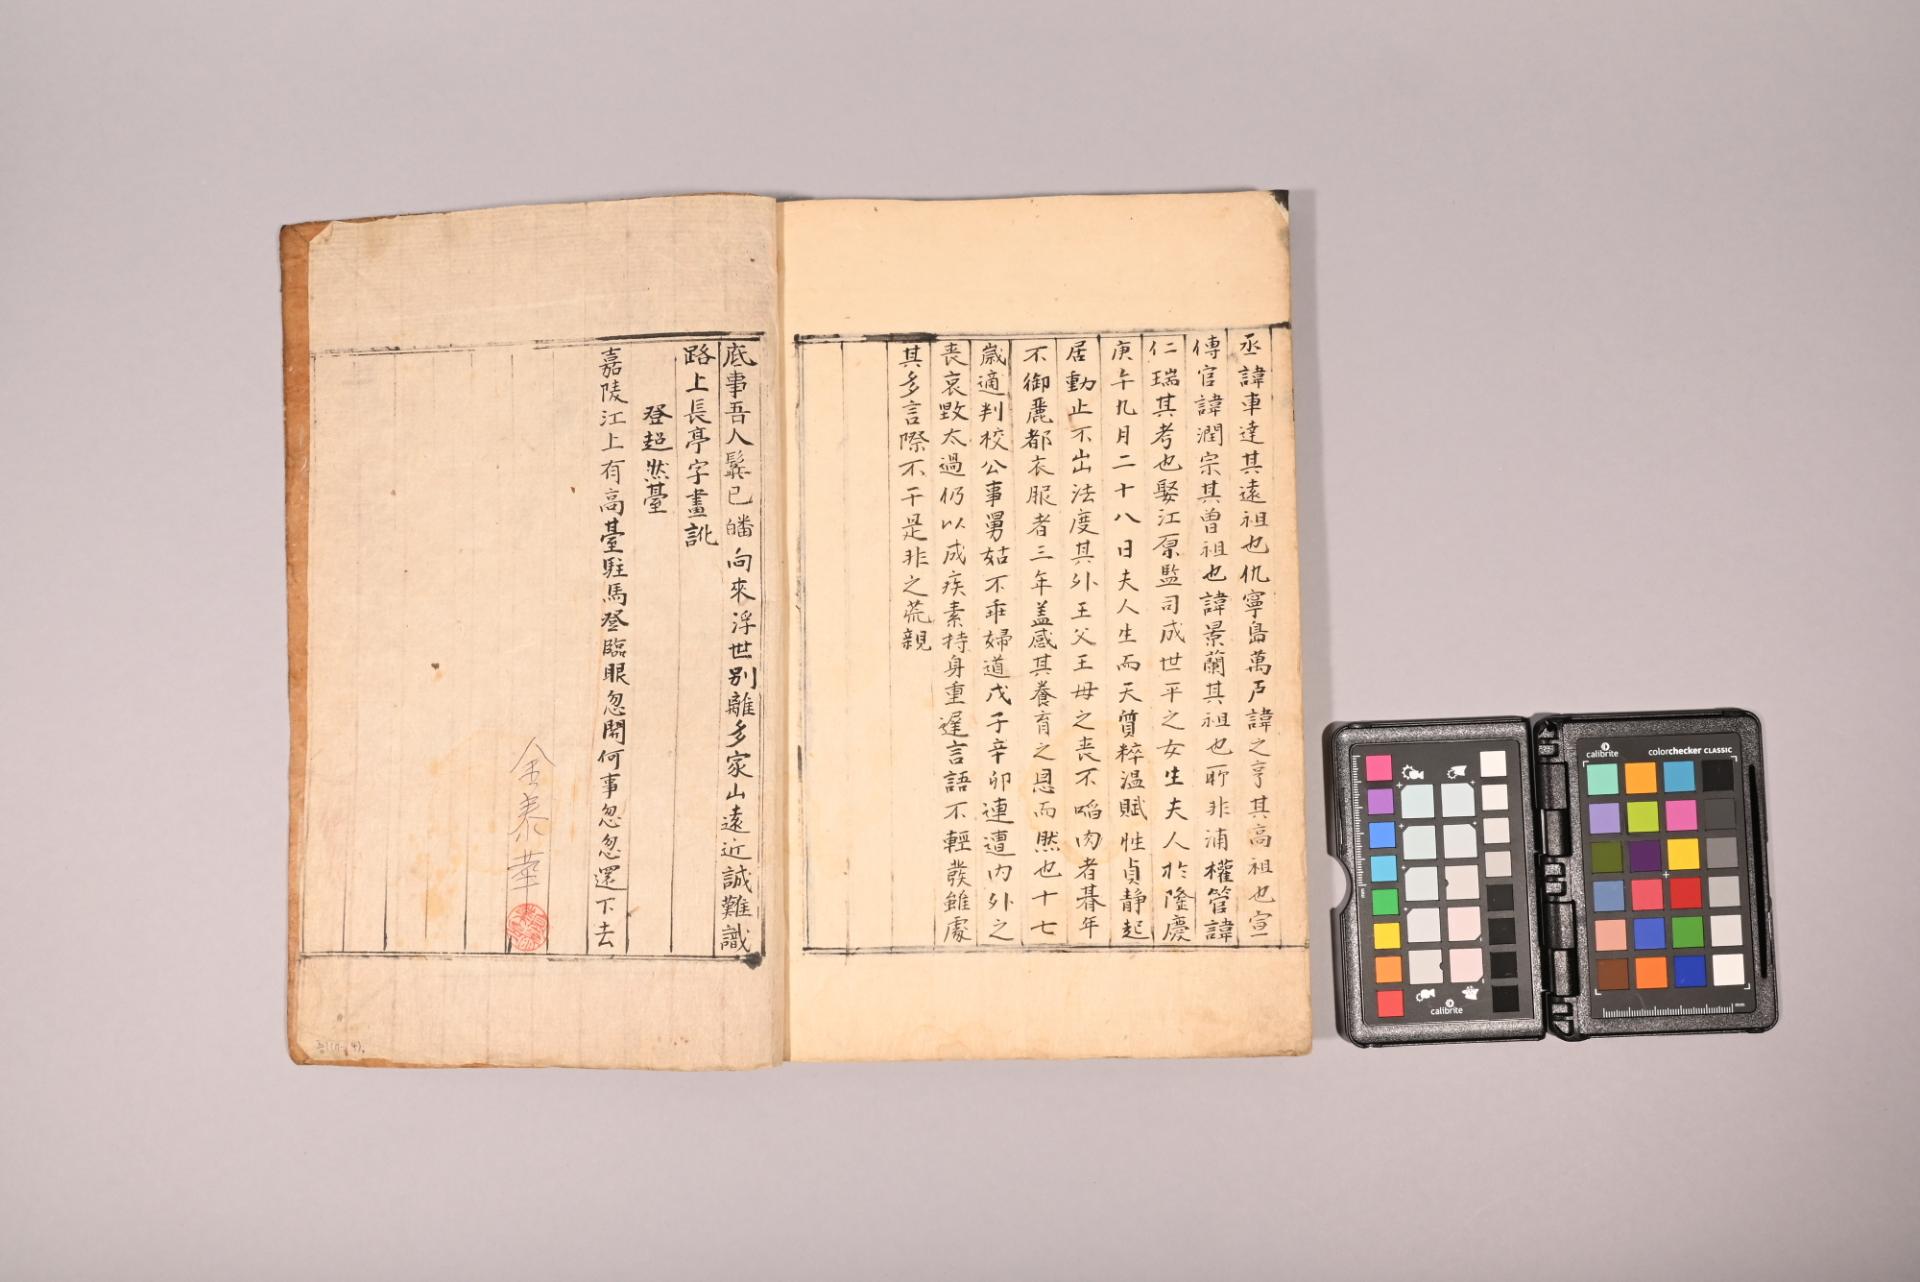 丞諱車達其遠祖也仇寧島萬戶諱之亨其高祖也宣
傳官諱潤宗其曽祖也諱景蘭其祖也郎非浦權管諱
仁瑞其考也娶江原監司成世平之女生夫人於隆慶
庚午九月二十八日夫人生而天質粹温賦性貞静起
居動止不出法度其外王父王母之喪不啗肉者朞年
不御麗都衣服者三年盖感其養育之恩而然也十七
歲適判校公事舅姑不乖婦道戊子辛卯連遭内外之
喪哀毀太過仍以成疾素持身重遅言語不輕發雖處
其多言際不干是非之荒親
底事吾人鬂已皤向來浮世别離多家山遠近誠難識
路上長亭字畫訛
登超然䑓
嘉陵江上有高䑓駐馬登臨眼忽開何事忽忽還下去
金泰華
calibrite
calibrite
colorchecker CLASSIC
mm